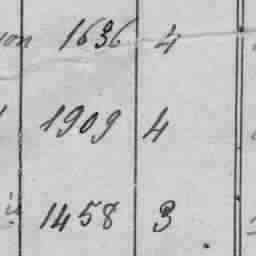 1636 4
1909 4
1458 3